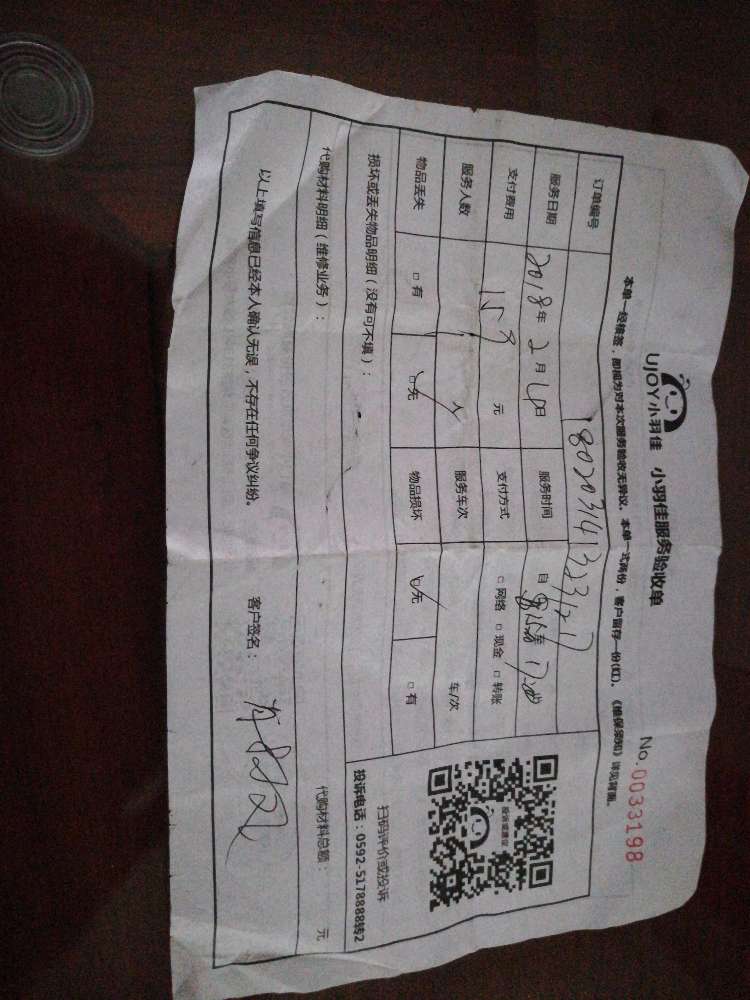 UJOY小羽佳 小羽佳服务验收单 No.0033198
本单一经核签，即视为对本次服务验收无异议。本单一式两份，客户留存一份(红)。《维保须知》详见背面。
订单编号
服务日期 2018年2月 日 服务时间 自 至
支付费用 元 支付方式 □网络 □现金 □转账
服务人数 人 服务车次 车/次
物品丢失 □有 □无 物品损坏 □无 □有
投诉或建议
扫码评价或投诉
投诉电话：0592-5178888转2
损坏或丢失物品明细（没有可不填）：
代购材料明细（维修业务）： 代购材料总额： 元
以上填写信息已经本人确认无误，不存在任何争议纠纷。 客户签名：